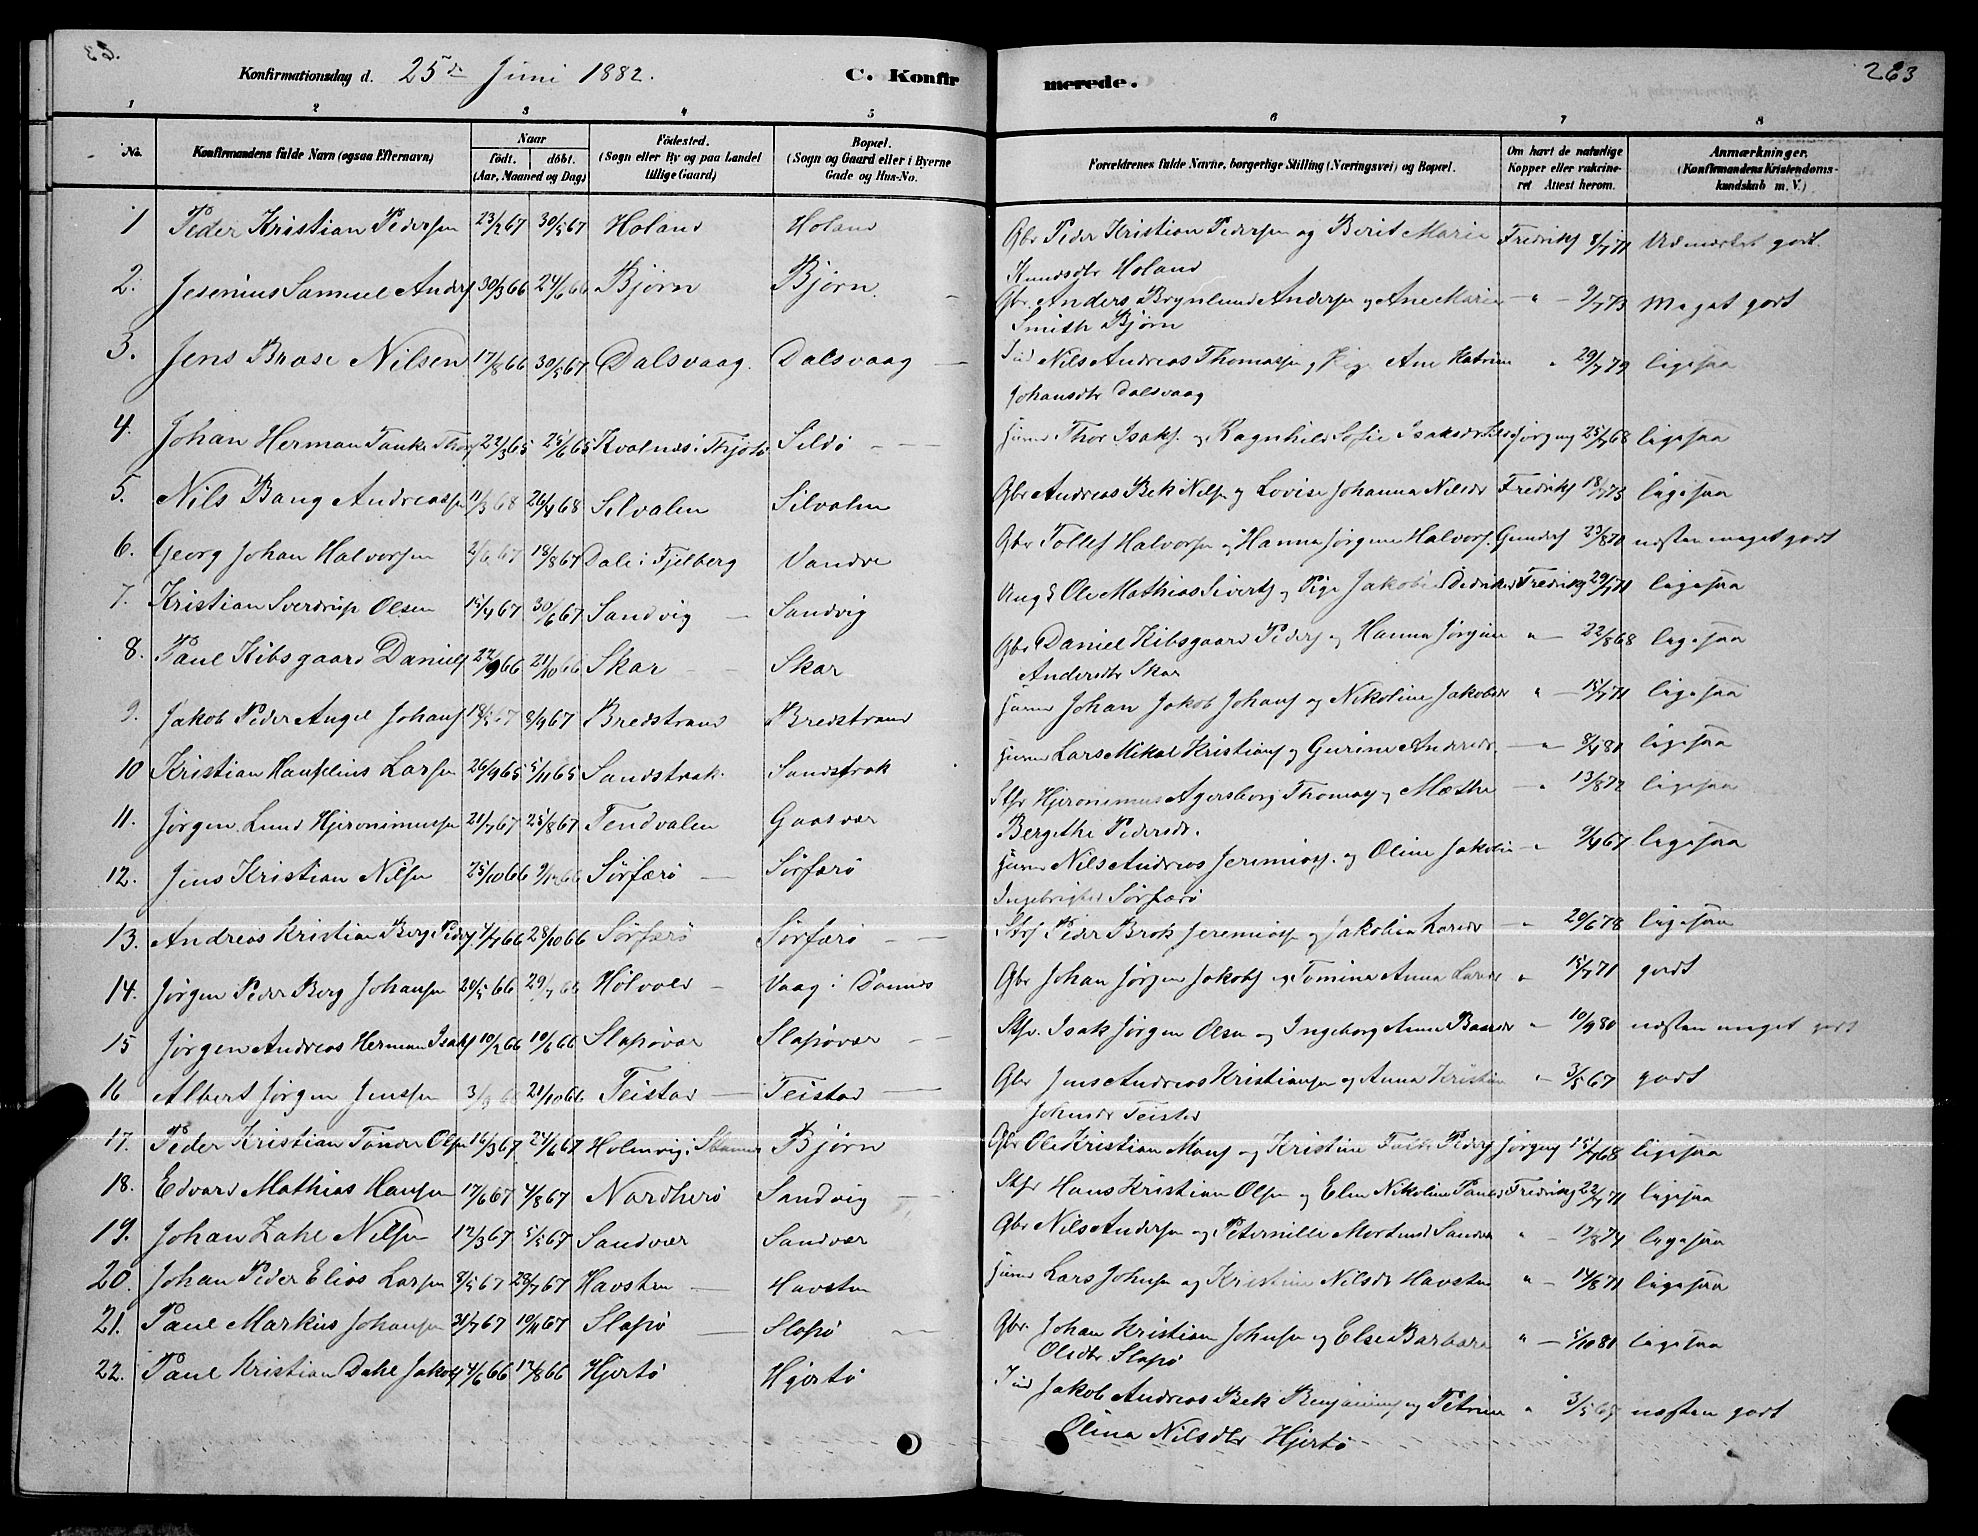 Konfirmationsdag d. 25de Juni 1882. C. Konfirmerede. 263
1 2 3 4 5 6 7 8
No. Konfirmandens fulde Navn (ogsaa Efternavn) Naar født. døbt. (Aar, Maaned og Dag) Fødested. (Sogn eller By og paa Landet tillige Gaard) Bopæl. (Sogn og Gaard eller i Byerne Gade og Hus-No. Forældrenes fulde Navne, borgerlige Stilling (Næringsvei) og Bopæl. Om havt de naturlige Kopper eller vakcineret Attest herom. Anmærkninger. (Konfirmandens Kristendomskundskab m. V.)
1 Peder Kristian Pedersen 23/2 67 30/5 67 Holand Holand Gbr Peder Kristian Pedersen og Berit Marie Fredriks 8/7 71 Udmærket godt.
Knudsdtr Holand
2. Jesenius Samuel Anders 30/3 66 24/6 66 Bjørn Bjørn Gbr. Anders Brynlund Andersen og Ane Marie " 9/7 73 Meget godt
Smith Bjørn
3. Jens Brose Nilsen 17/8 66 30/5 67 Dalsvaag. Dalsvaag Ind Nils Andreas Thomassen og Ane Katrine " 29/7 79 ligesaa
Johansdtr Dalsvaag
4. Johan Herman Tanke Thors 22/3 65 25/6 65 Kvalnæs i Thjøtø Sildø Thor Isaks. og Ragnhild Sofie Isaksdtr Jørgens 25/7 68 ligesaa
5. Nils Bang Andreassen 11/3 68 26/4 68 Silvalen Silvalen Gbr Andreas Bek Nilsen og Lovise Johanna Nilsdr Fredriks 18/7 73 ligesaa
6. Georg Johan Halvorsen 2/6 67 18/8 67 Dale i Fjelberg Vandve Gbr Tollef Halvorsen og Hanna Jørgine Halvors. Gunders 23/8 70 næsten meget godt
7. Kristian Sverdrup Olsen 15/4 67 30/6 67 Sandvig Sandvig Ung S Ole Mathias Siverts og Pige Jakobine Fredriks 29/7 71 ligesaa
8. Paul Kibsgaard Daniels 22/9 66 21/10 66 Skar Skar Gbr Daniel Kibsgaard Peders og Hanna Jørgine " 22/8 68 ligesaa
Andersdtr Skar
9. Jakob Peder Angel Johans 18/5 67 8/9 67 Bredstrand Bredstrand Johan Jakob Johans og Nikoline Jakobsdr " 15/7 71 ligesaa
10 Kristian Larsen 26/9 65 5/11 65 Sandstrak Sandstrak Lars Mikal Kristians og Gurine Andersdr " 8/4 81 ligesaa
11. Jørgen Lund Hjeronimussen 21/7 67 25/8 67 Tendvalen Gaasvær Hjeronimus Agersborg Thomas og Mæthe " 13/8 72 ligesaa
Bergithe Pedersdr.
12. Jens Kristian Nilsen 25/10 66 9/12 66 Sørfærø Sørfærø Nils Andreas Jeremias. og Oline Jakobin " 9/4 67 ligesaa
Ingebrigtsd Sørfærø
13. Andreas Kristian Berg Peders 4/7 66 28/10 66 Sørfærø Sørfærø Peder Brok Jeremias og Jakobin Larsdr " 20/6 78 ligesaa
14. Jørgen Peder Berg Johansen 20/5 66 29/7 66 Hølvold Vaag i Dønnes Gbr Johan Jørgen Jakobs og Tomina Anna Larsdr " 15/7 71 godt
15 Jørgen Andreas Herman Isaks 10/2 66 10/6 66 Slapøvær Slapøvær Isak Jørgen Olsen og Ingeborg Anna " 10/9 80 næsten meget godt
16 Albert Jørgen Jenssen 3/9 66 21/10 66 Teistad Teistad Gbr Jens Andreas Kristiansen og Anna Kristin " 3/5 67 godt
Johnsdr Teistad
17. Peder Kristian Tønder Olsen 16/3 67 24/6 67 Holmvig i Bjørn Gbr Ole Kristian Mons og Kristine Falk Peders Jørgens 15/7 68 ligesaa
18. Edvard Mathias Hansen 17/6 67 4/8 67 Nordherø Sandvig Hans Kristian Olsen og Elen Nikoline Paulsd Fredriks 22/7 71 ligesaa
19. Johan Zahl Nilsen 12/3 67 5/5 67 Sandvær Sandvær Gbr Nils Andersen og Peternille Mortensd Sandvær " 17/8 74 ligesaa
20. Johan Peder Elias Larsen 8/5 67 28/7 67 Havsten Havsten Lars Johnsen og Kristine Nilsdr Havsten " 14/8 71 ligesaa
21. Paul Markus Johansen 31/7 67 10/11 67 Slapø Slapø Gbr. Johan Kristian Johnsen og Else Barbara " 5/10 81 ligesaa
Olsdtr Slapø
22. Paul Kristian Dahl Jakobs 4/6 66 12/8 66 Hjertø Hjertø Ind Jakob Andreas Bek Benjamins og Petrine " 3/5 67 næsten godt
Olina Nilsdtr Hjertø